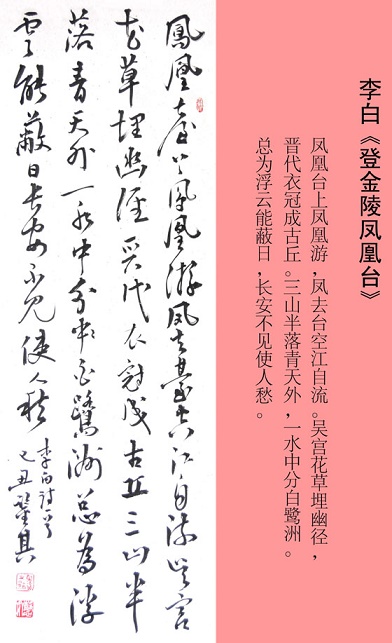 李白《登金陵凤凰台》
凤凰台上凤凰游,凤去台空江自流。吴宫花草埋幽径,
晋代衣冠成古丘。三山半落青天外,一水中分白鹭洲。
总为浮云能蔽日,长安不见使人愁。
鳳凰臺上鳳凰游鳳去臺空江自流吳宮
花草埋幽徑晉代衣冠成古丘三山半
落青天外一水中分白鷺洲總為浮
雲能蔽日長安不見使人愁
李白詩